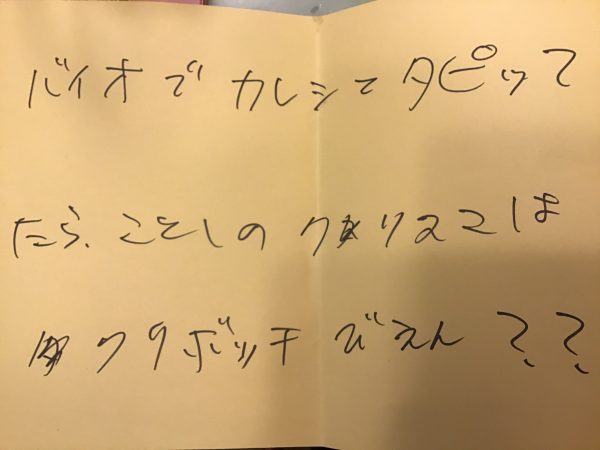 バイオで カレシ タピッて
たら、ことしの クリスマは
クリボッチ びえん??